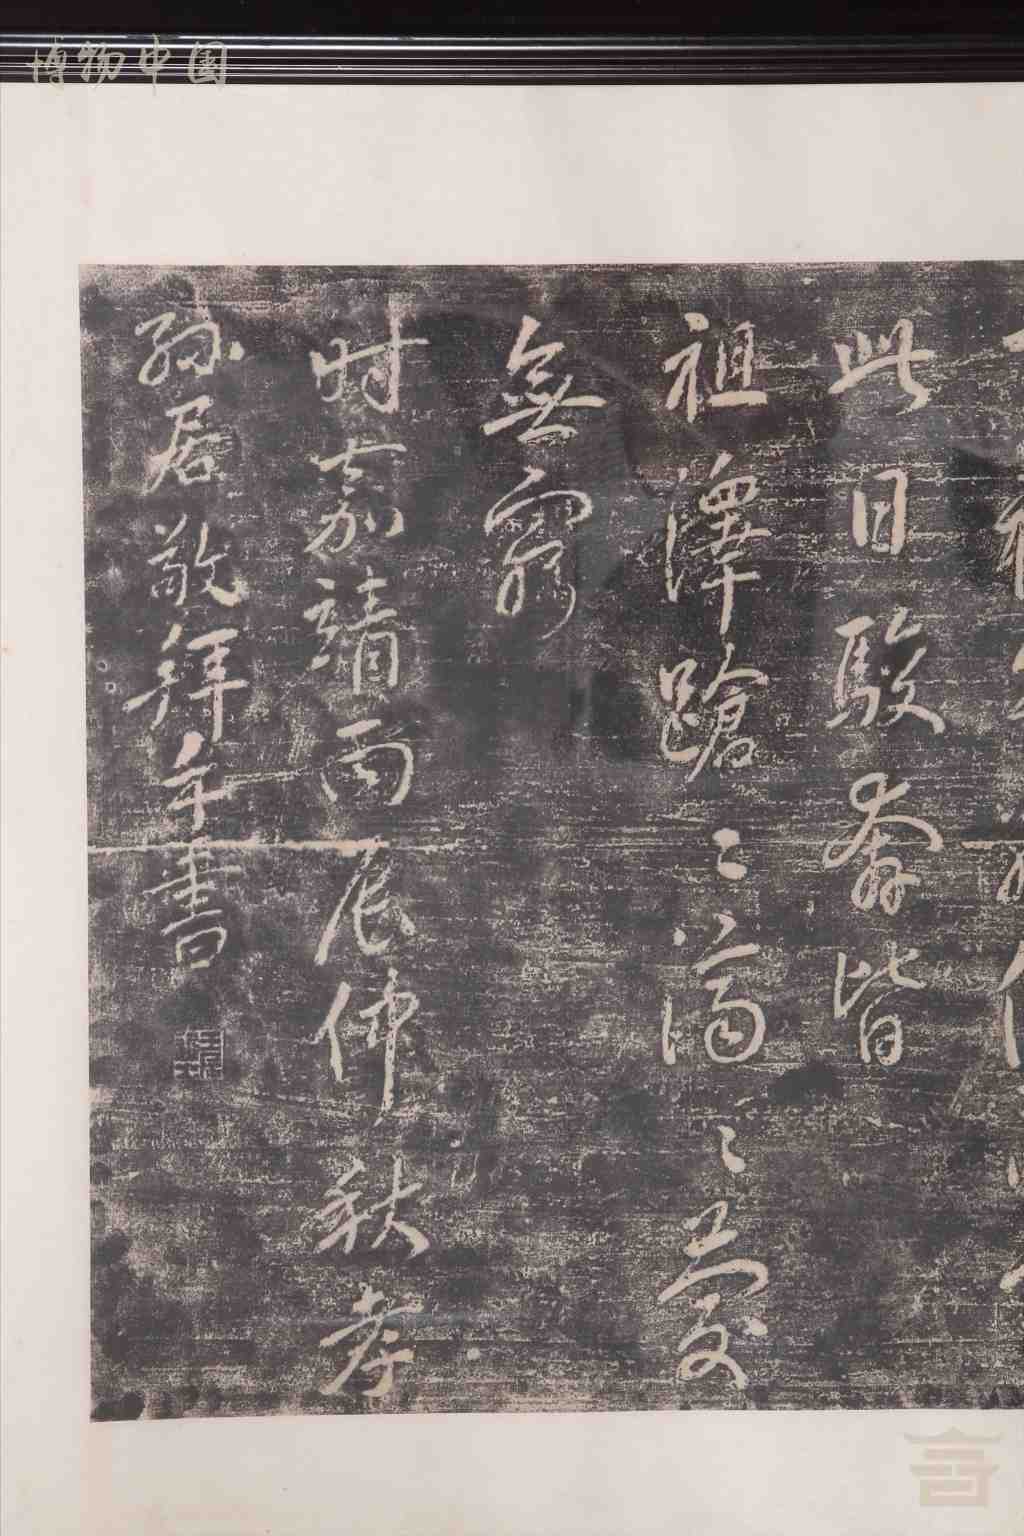 博物中国
此日駿奔皆
祖澤蹌〻濟〻慶
無窮
时嘉靖丙辰仲秋孝
孫居敬拜手書